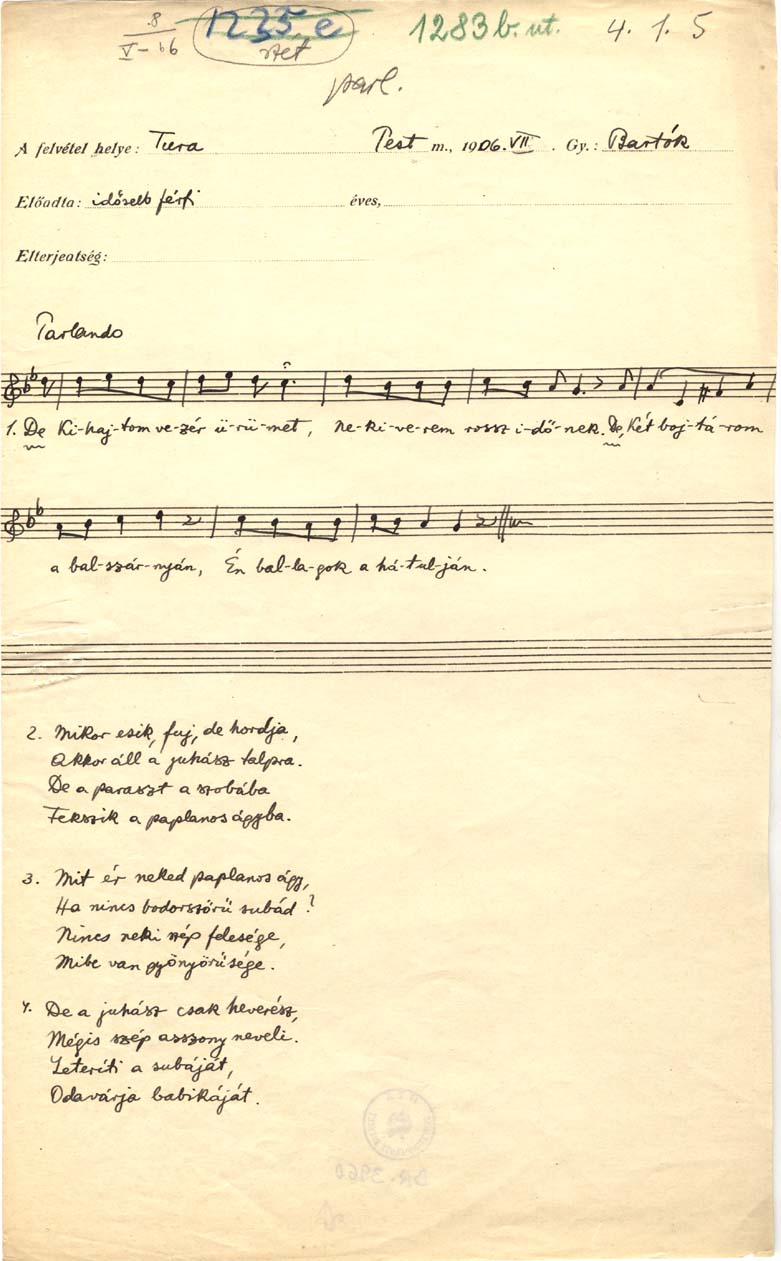 8
V-66
1235 e
1283 b. ut.
4. 1. 5
parl.
A felvétel helye: Tura Pest m., 1906. VII. Gy.: Bartók
Előadta: idősebb férfi éves,
Elterjedtség:
Parlando
1. De Ki-haj-tom ve-zér ü-rü-met, ne-ki-ve-rem rossz i-dő-nek. De, Két boj-tá-rom
a bal-szár-nyán, Én bal-la-gok a há-tul-ján.
2. Mikor esik, fuj, de hordja,
Akkor áll a juhász talpra.
De a paraszt a szobába
Fekszik a paplanos ágyba.
3. Mit ér neked paplanos ágy,
Ha nincs bodorszőrü subád?
Nincs neki szép felesége,
Mibe van gyönyörüsége.
4. De a juhász csak heverész,
Mégis szép asszony neveli.
Leteríti a subáját,
Odavárja babikáját.
BR. 3960